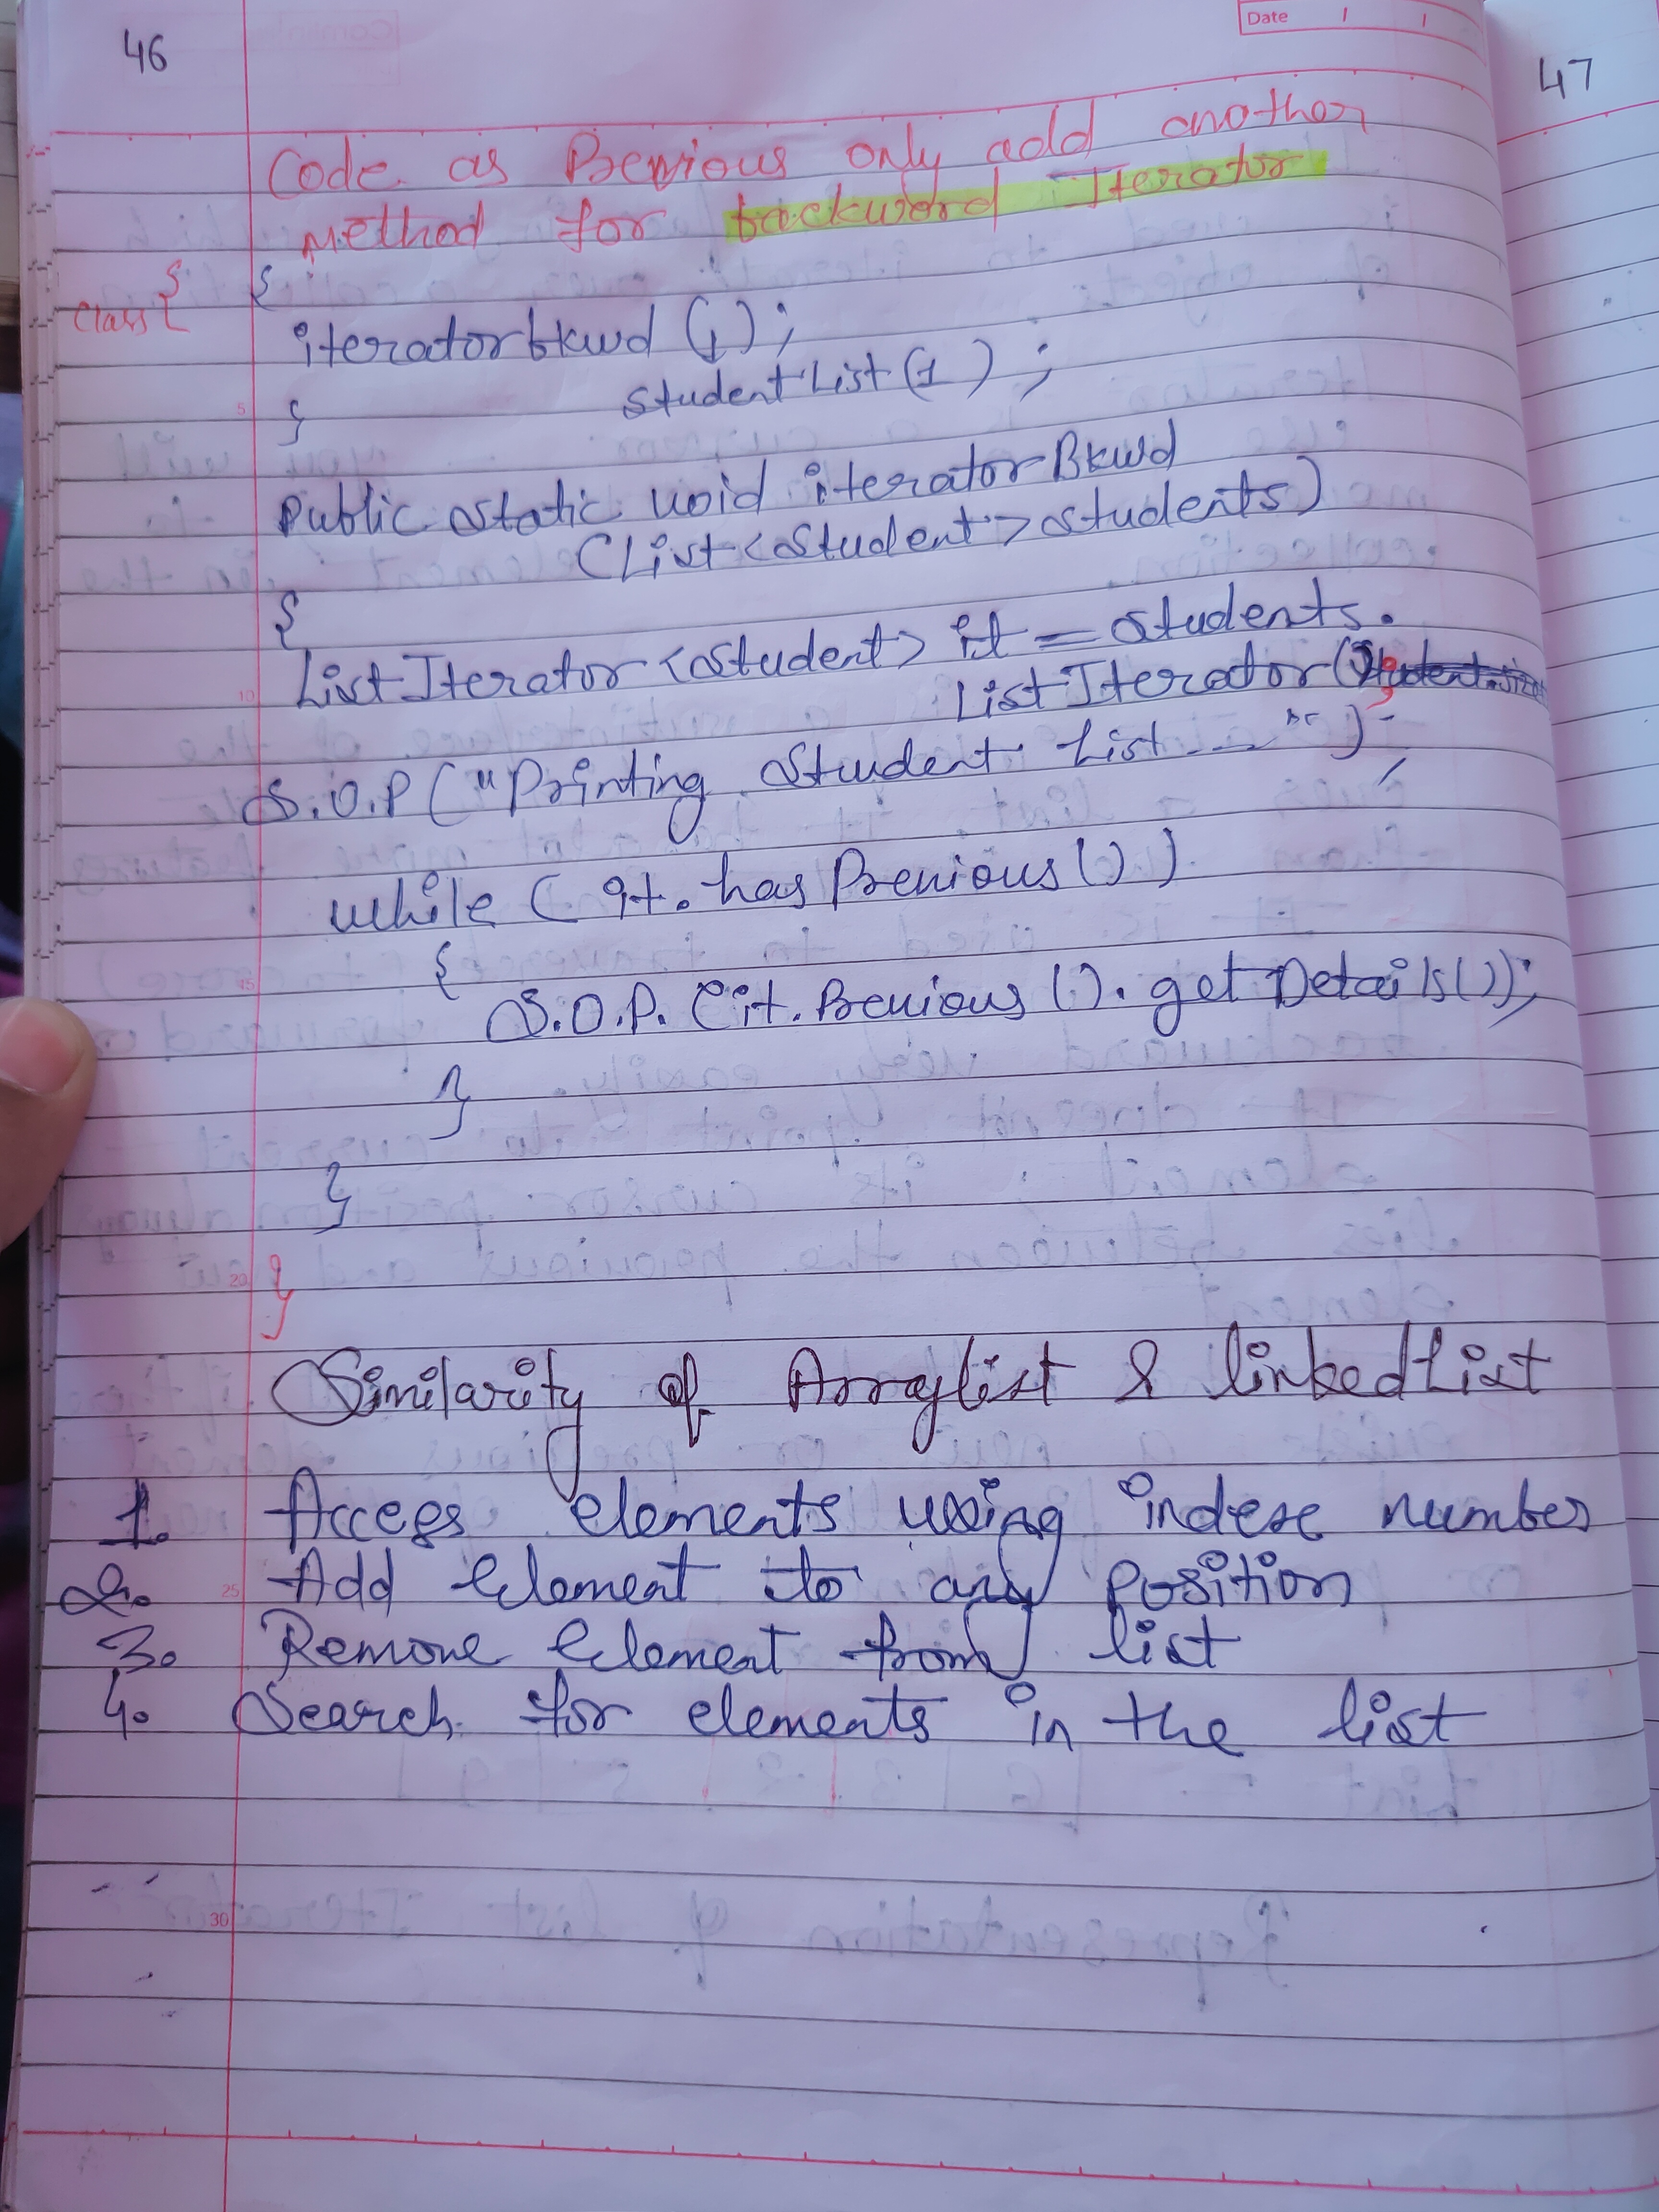 46
Date / /
47
Code as Previous only add another
method for backword Iterator
class {
{
iteratorbkwd ( );
studentList(1) ;
}
Public static void iteratorBkwd
(List<Student> students)
{
ListIterator<Student> it = students.
ListIterator( );
S.O.P ("Printing Student List --- ");
while ( it. has Previous() )
{
S.O.P. (it. Previous (). get Details());
}
}
}
Similarity of Arraylist & linkedList
1. Access elements using index number
2. Add Element to any Position
3. Remove Element from list
4. Search for elements in the list
5
10
15
20
25
30